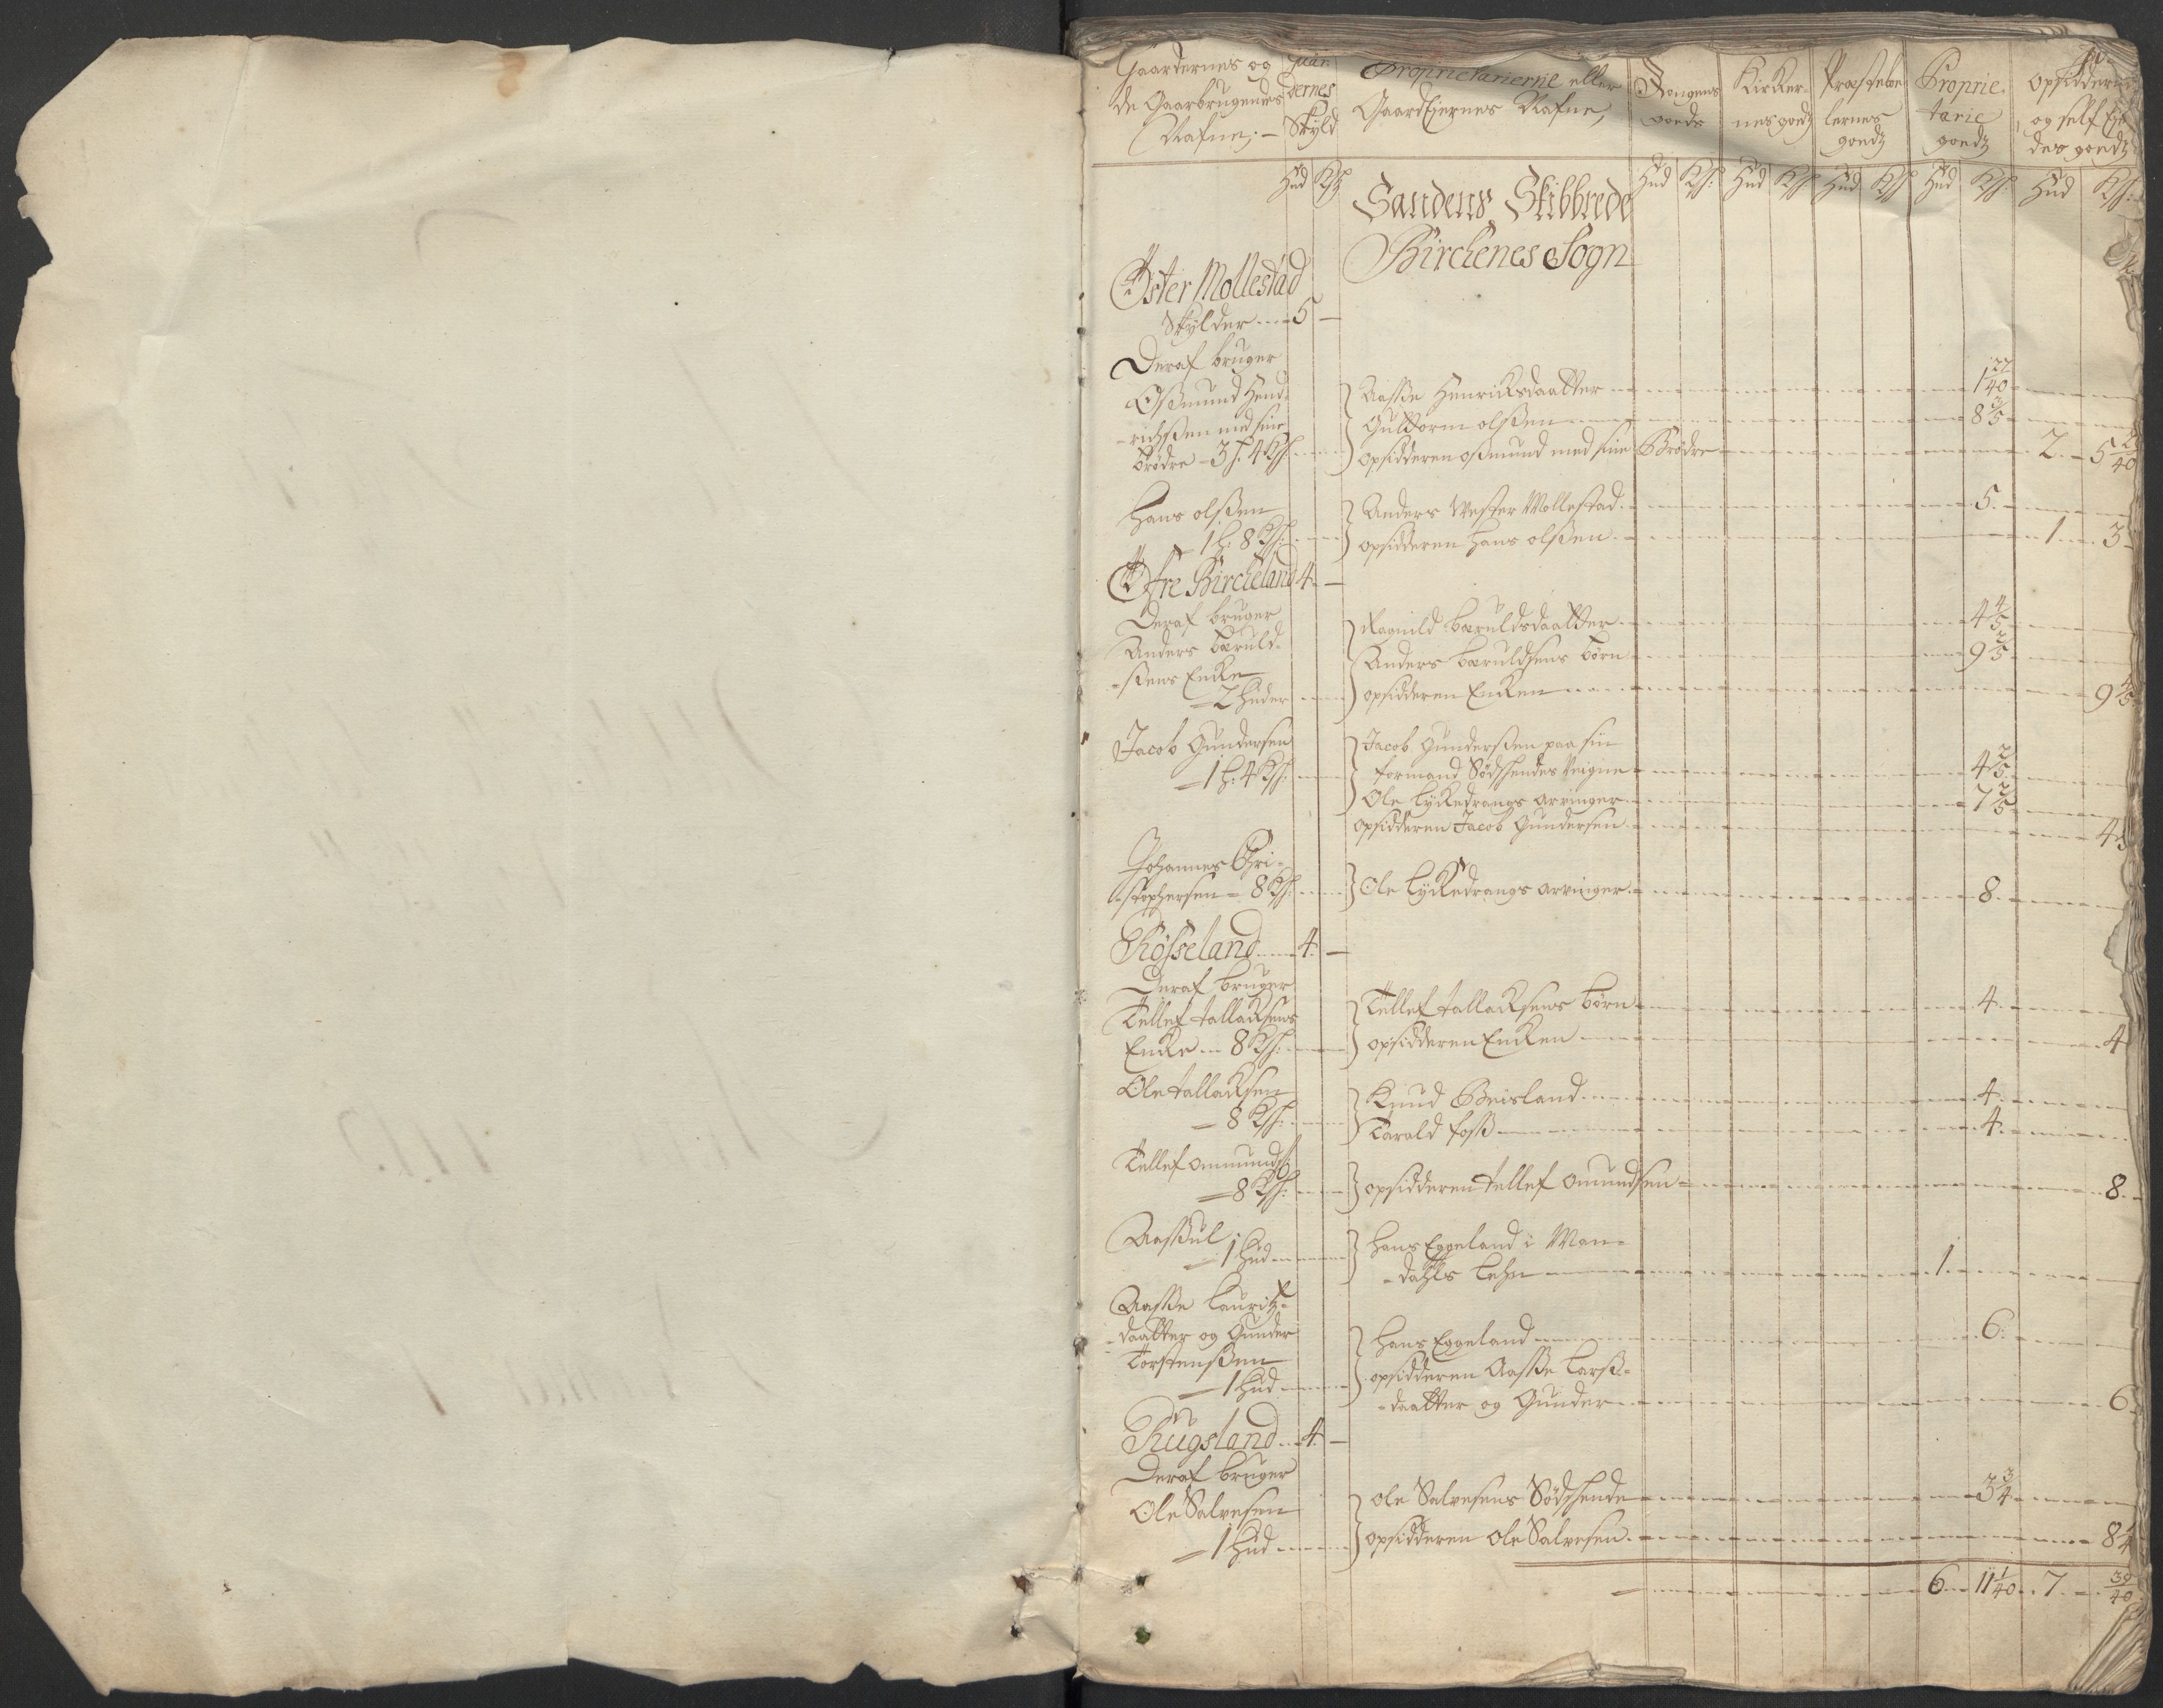 Gaardernes og
de Gaarbrugendes
Nafne,
Gaar
dernes
Skyld
Proprietarierne eller
GaardEjernes Nafne,
Kongens
goeds
Kirker-
nes goedz
Præstebo
lernes
goedz
Proprie-
tarie
goedz
Opsidderne
og self Eje
des goedz
Hud Ksh: Hud Ksh: Hud Ksh: Hud Ksh: Hud Ksh: Hud Ksh:
Sandens Skibbrede
Birchenes Sogn
Øster Mollestad
Skylder 5 -
Deraf bruger
Oßmund Hend-
-richßen med sine
brødre - 3 h. 4 Ksh:
Aaße Henricksdaatter 1 27/40
Guttorm olßen 8 3/5
opsidderen oßmund med sine Brødre 2 5 2/40
Hans olßen
1 h: 8 Ksh:
Anders Wester Mollestad 5
opsidderen Hans olßen 1 3
Øfre Bircheland 4 -
Deraf bruger
Anders bæruld-
-ßens Encke
- 2 huder
Ragnild bæruldsdaatter 4 4/5
Anders bæruldsens børn 9 2/5
opsidderen Encken 9 4/5
Jacob Gundersen
- 1 h: 4 Ksh:
Jacob Gunderßen paa sin
formand Sødskendes Veigne 4 2/5
Ole Lyckedrangs arvinger 7 2/5
opsidderen Jacob Gundersen 4
Johannes Chri-
-stophersen - 8 Ksh:
Ole Lyckedrangs arvinger 8
Røsseland 4 -
Deraf bruger
Tellef tallacksens
Encke 8 Ksh:
Tellef tallacksens børn 4
opsidderen Encken 4
Ole tallacksen
- 8 Ksh:
Knud Beisland 4
Tarald foss 4
Tellef ommunds:
- 8 Ksh:
opsidderen tellef omundsen 8
Aaßul
- 1 hud
Hans Eggeland i Man-
-dahls Lehn 1
Aaße Lauritz-
-daatter og Gunder
Torstenßen
- 1 hud
Hans Eggeland 6
opsidderen Aaße Larß-
-daatter og Gunder 6
Rugsland 4 -
Deraf bruger
Ole Salvesen
- 1 hud
Ole Salvesens Sødskende 3 3/4
opsidderen Ole Salvesen 8 1/4
6 11 1/40 7 39/40